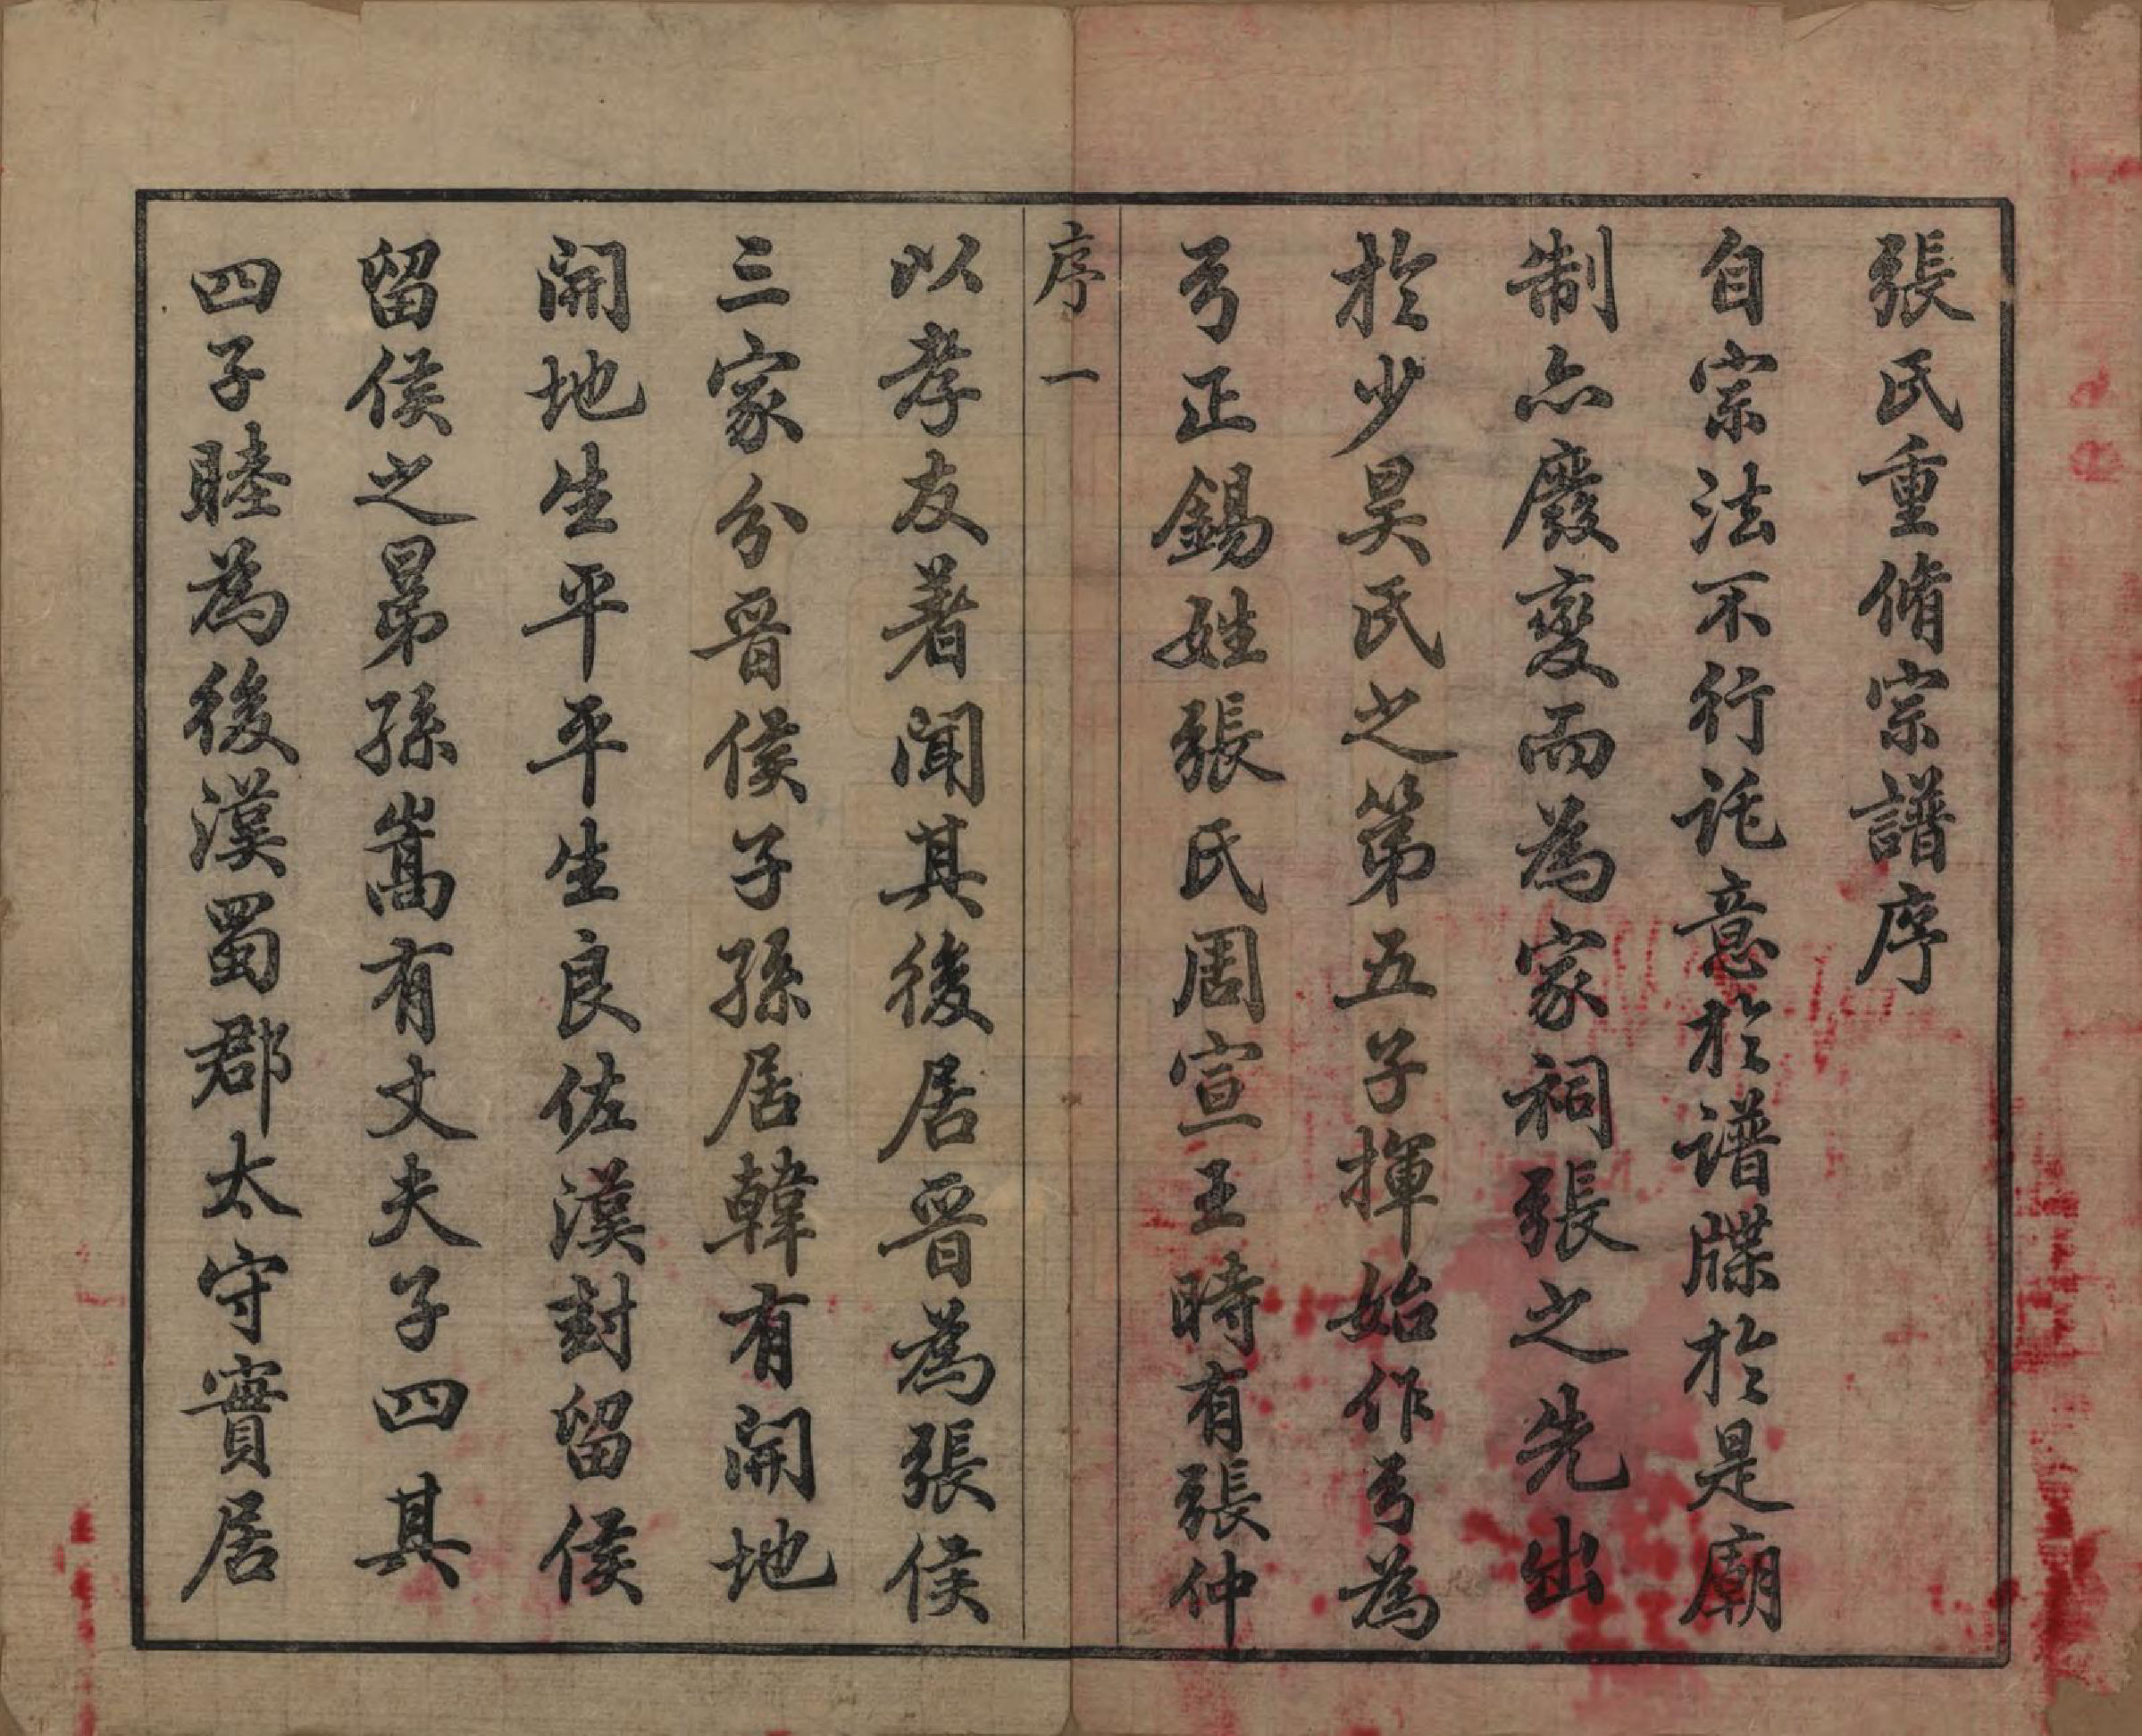 張氏重脩宗譜序
自宗法不行託意於譜牒於是廟
制亦廢變而為家祠張之先出
於少昊氏之第五子揮始作弓為
弓正錫姓張氏周宣王時有張仲
序一
以孝友著聞其後居晉為張侯
三家分晉侯子孫居韓有開地
開地生平平生良佐漢封留侯
留侯之晜孫嵩有丈夫子四其
四子睦為後漢蜀郡太守實居